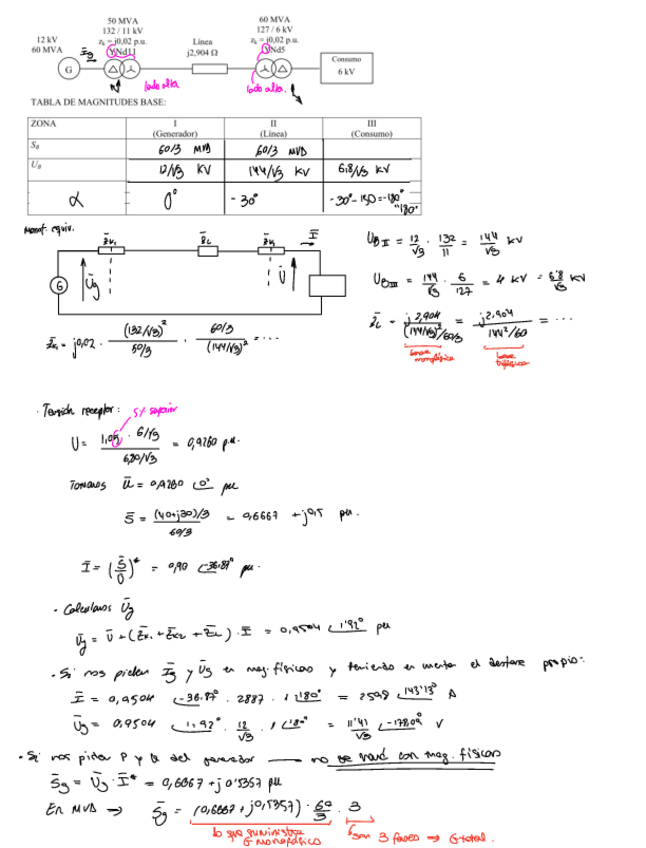 50 MVA
132 / 11 kV
zk = j0,02 p.u.
YNd11
60 MVA
127 / 6 kV
zk = j0,02 p.u.
YNd5
12 kV
60 MVA
Ig
G
Línea
j2,904 Ω
Consumo
6 kV
lado alta
lado alta.
TABLA DE MAGNITUDES BASE:
ZONA
I
(Generador)
II
(Línea)
III
(Consumo)
SB
60/3 MVA
60/3 MVA
UB
12/√3 KV
144/√3 KV
6,8/√3 KV
α
0°
-30°
-30°-150=-180°
"180°
monof. equiv.
G
Ūg
Ū
Ī
UB II = 12/√3 · 132/11 = 144/√3 kV
UB III = 144/√3 · 6/127 = 4 KV = 6'8/√3 KV
z̄k1 = j0,02 · (132/√3)²/50/3 · 60/3/(144/√3)² = ...
z̄L = j2,904/(144/√3)²/60/3 = j2,904/144²/60 = ...
base monofásica
base trifásica
· Tensión receptor: 5% superior
U = 1,05 · 6/√3 / 6,80/√3 = 0,9260 p.u.
Tomamos Ū = 0,9260 ∠0° pu
S̄ = (40+j30)/3 / 60/3 = 0,6667 + j0,5 pu.
Ī = (S̄/Ū)* = 0,90 ∠-36.87° pu.
- Calculamos Ūg
Ūg = Ū + (Z̄k1 + Z̄k2 + Z̄L) · Ī = 0,9504 ∠1'92° pu
- Si nos piden Īg y Ūg en mag. físicas y teniendo en cuenta el desfase propio:
Ī = 0,9504 ∠-36.87° · 2887 · 1∠180° = 2598 ∠143'13° A
Ūg = 0,9504 ∠1,92° · 12/√3 · 1∠180° = 11'41/√3 ∠-178.08° V
· Si nos piden P y Q del generador — no se hará con mag. físicas
S̄g = Ūg · Ī* = 0,6667 + j0'5357 pu
En MVA → S̄g = (0,6667 + j0,5357) · 60/3 · 3
lo que suministra G monofásico
son 3 fases → G total.